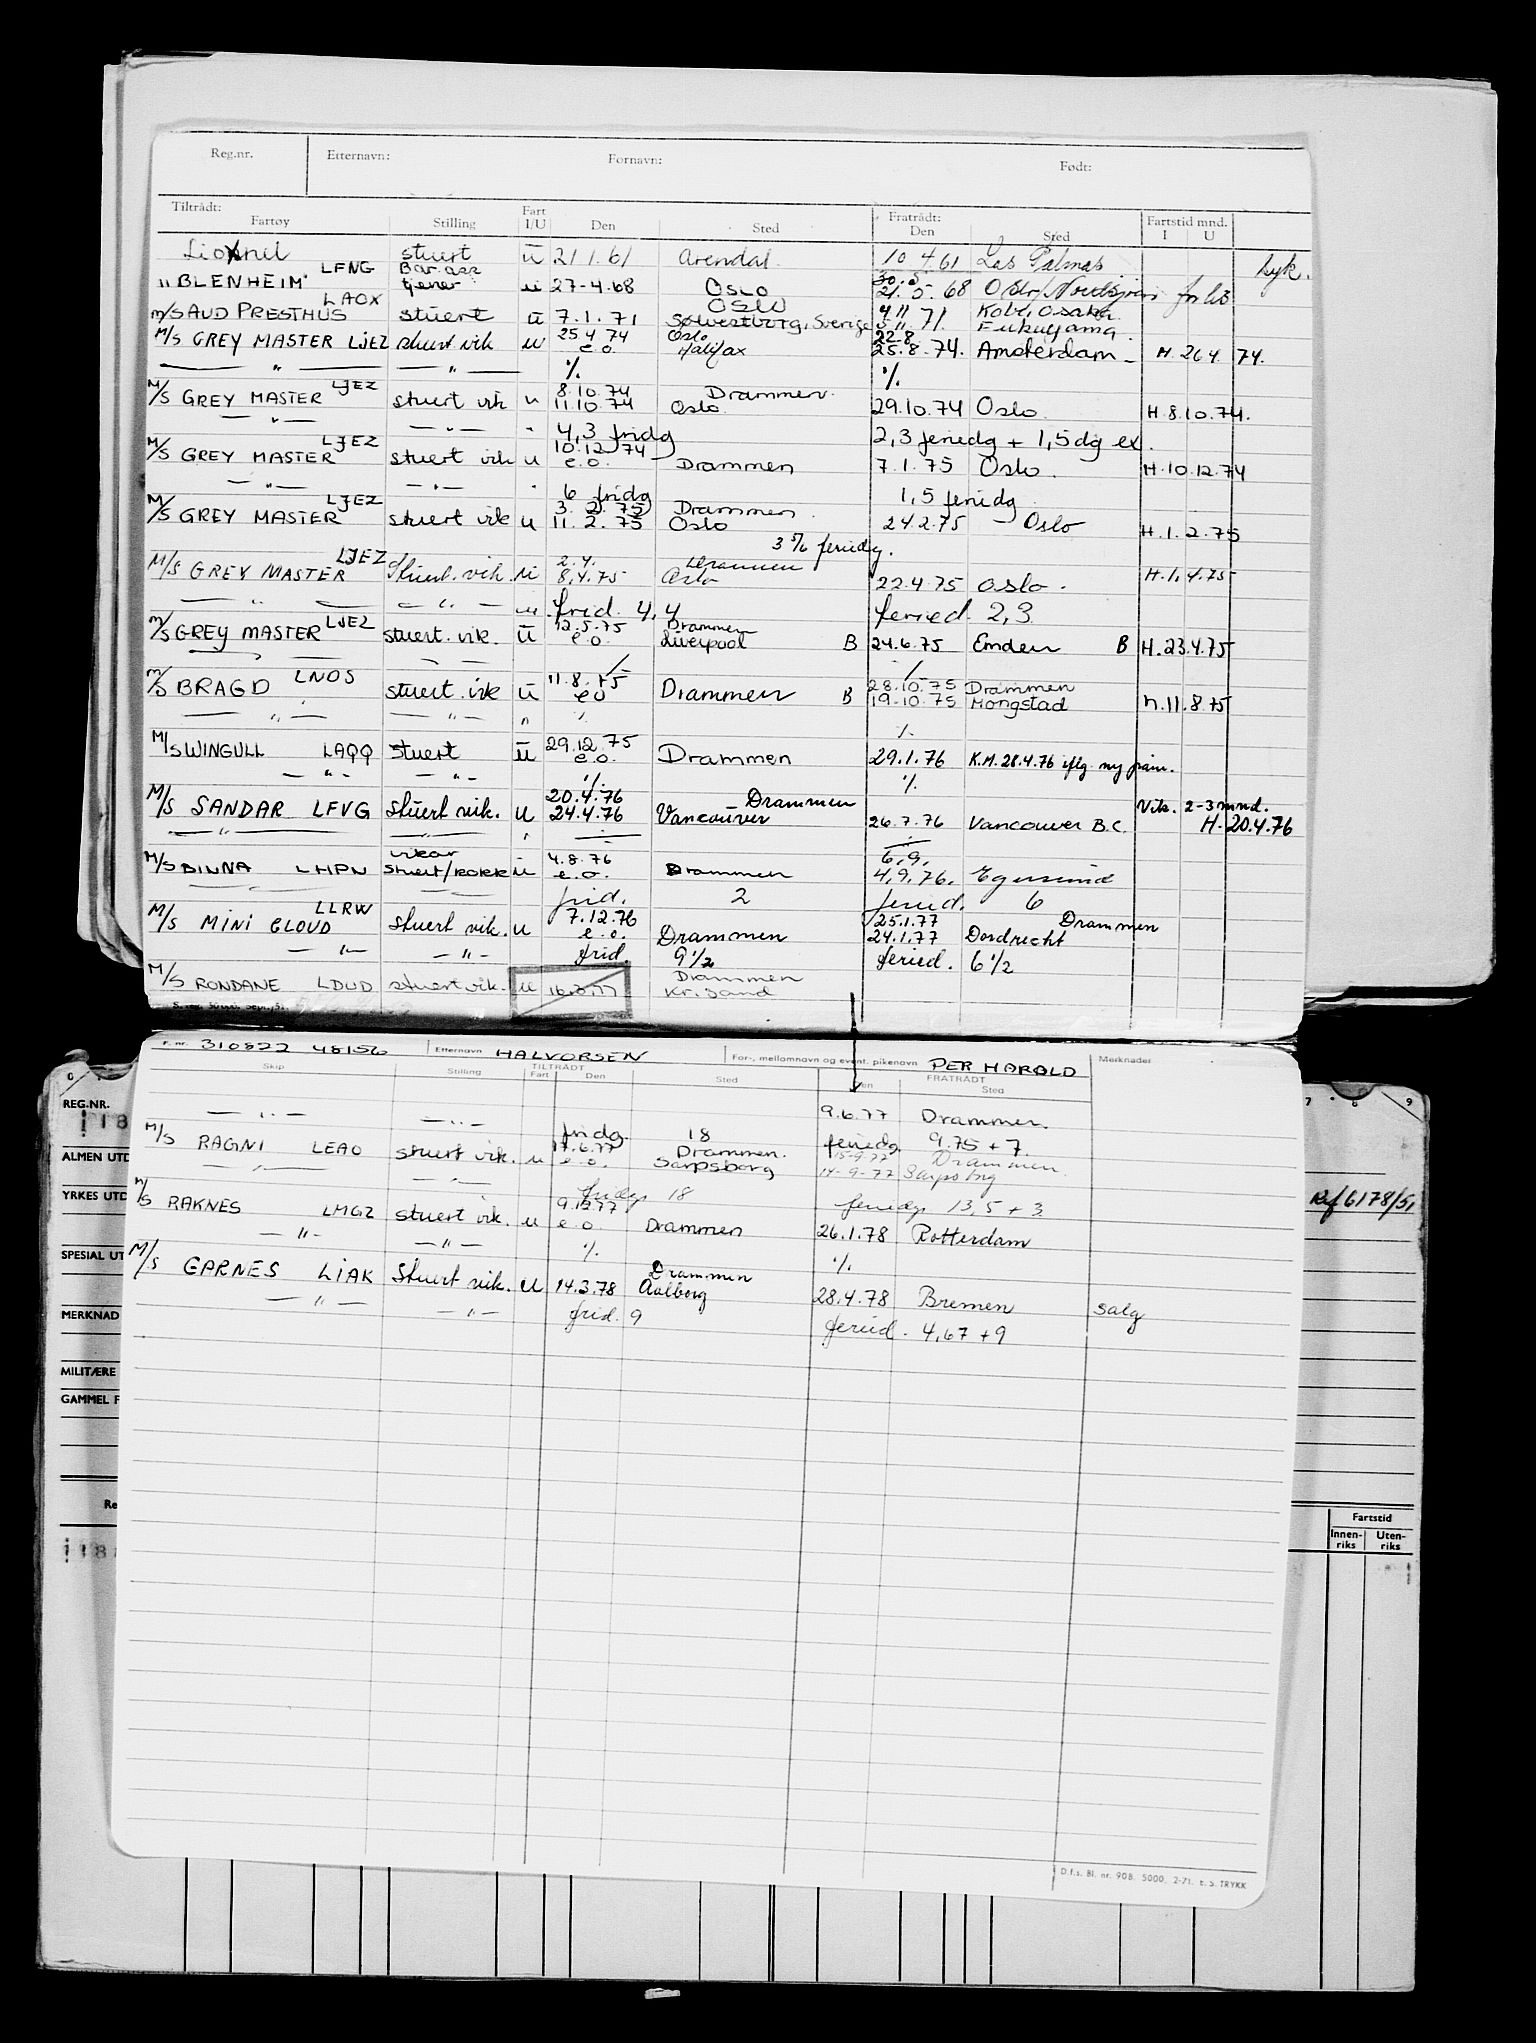 Reg.nr. Etternavn: Fornavn: Født:
Tiltrådt: Fartøy Stilling Fart I/U Den Sted Fratrådt: Den Sted Fartstid mnd. I U
Lionel stuert u 21.1.61 Arendal 10.4.61 Las Palmas Syk.
LFNG Bår.ass 30.5
"BLENHEIM" tjener u 27-4.68 OSLO 21.5.68 Oslo/
LAOX OSLO 4.11 Kobe, Osaka
M/S AUD PRESTHUS stuert u 7.1.71 Sølvestborg, Sverige 5.11.71. Fukuyama
25.4.74 Oslo 22.8
M/S GREY MASTER LJEZ stuert vik u e.o. Halifax 25.8.74. Amsterdam H. 26.4.74.
— " — — " — % %
LJEZ 8.10.74 Drammen
M/S GREY MASTER stuert vik u 11.10.74 Oslo 29.10.74 Oslo H.8.10.74.
— " — — " — " 4,3 fridg 2,3 feriedg + 1,5 dg ex.
LJEZ 10.12.74
M/S GREY MASTER stuert vik u e.o. Drammen 7.1.75 Oslo. H.10.12.74
— " — — " — " 6 fridg 1,5 feriedg
LJEZ 3.2.75 Drammen
M/S GREY MASTER stuert vik u 11.2.75 Oslo 24.2.75 Oslo H.1.2.75
3 5/6 feriedg.
LJEZ 2.4. Drammen
M/S GREY MASTER Stuert.vik u 8.4.75 Oslo 22.4.75 Oslo. H.1.4.75
— " — — " — u frid. 4,4 feried. 2,3
LJEZ 12.5.75 Drammen
M/S GREY MASTER stuert. vik. u e.o. Liverpool B 24.6.75 Emden B H.23.4.75
LNOS 11.8.75 28.10.75 Drammen
M/S BRAGD stuert. vik u e o Drammen B 19.10.75 Mongstad h.11.8.75
— " — — " — " % %
29.12.75
M/S WINGULL LAQQ stuert u e.o. Drammen 29.1.76 K.M. 28.4.76 iflg. ny
— " — — " — % %
20.4.76 Drammen Vik. 2-3 mnd.
M/S SANDAR LFVG stuert vik. u 24.4.76 Vancouver 26.7.76 Vancouver B.C. H. 20.4.76
— " — — " —
vikar 4.8.76 6.9.
M/S BINNA LHPN stuert/kokk u e.o. Drammen 4.9.76. Egersund
— " — — " — frid. 2 feried. 6
LLRW 7.12.76 25.1.77 Drammen
M/S MINI CLOUD stuert vik. u e.o. Drammen 24.1.77 Dordrecht
— " — — " — frid. 9 1/2 feried. 6 1/2
Drammen
M/S RONDANE LDUD stuert vik. u Kr.sand
F. nr. 310822 48156 Etternavn HALVORSEN For-, mellomnavn og event. pikenavn PER HAROLD Merknader
TILTRÅDT FRATRÅDT
Skip Stilling Fart Den Sted Den Sted
9.6.77 Drammen.
— " — — " — fridg. 18 feriedg. 9.75 + 7.
17.6.77 Drammen. 15-9.77 Drammen
M/S RAGNI LEAO stuert vik. u e.o. Sarpsborg 14-9-77 Sarpsbrg
— " — — " — fridg. 18 feriedg. 13,5 + 3
9.12.77
M/S RAKNES LMGZ stuert vik. u e.o Drammen 26.1.78 Rotterdam
— " — — " — % %
Drammen
M/S GARNES LIAK Stuert vik. u 14.3.78 Aalborg 28.4.78 Bremen salg
— " — — " — frid. 9 feried. 4,67 + 9
D.f.s. Bl. nr. 908. 5000. 2-71. E. S. TRYKK
REG.NR.
118
ALMEN UTD
YRKES UTD
SPESIAL UT
MERKNAD
MILITÆRE
GAMMEL F
Re
7 8 9
Ref 6178/51
Fartstid
Innen-riks Uten-riks